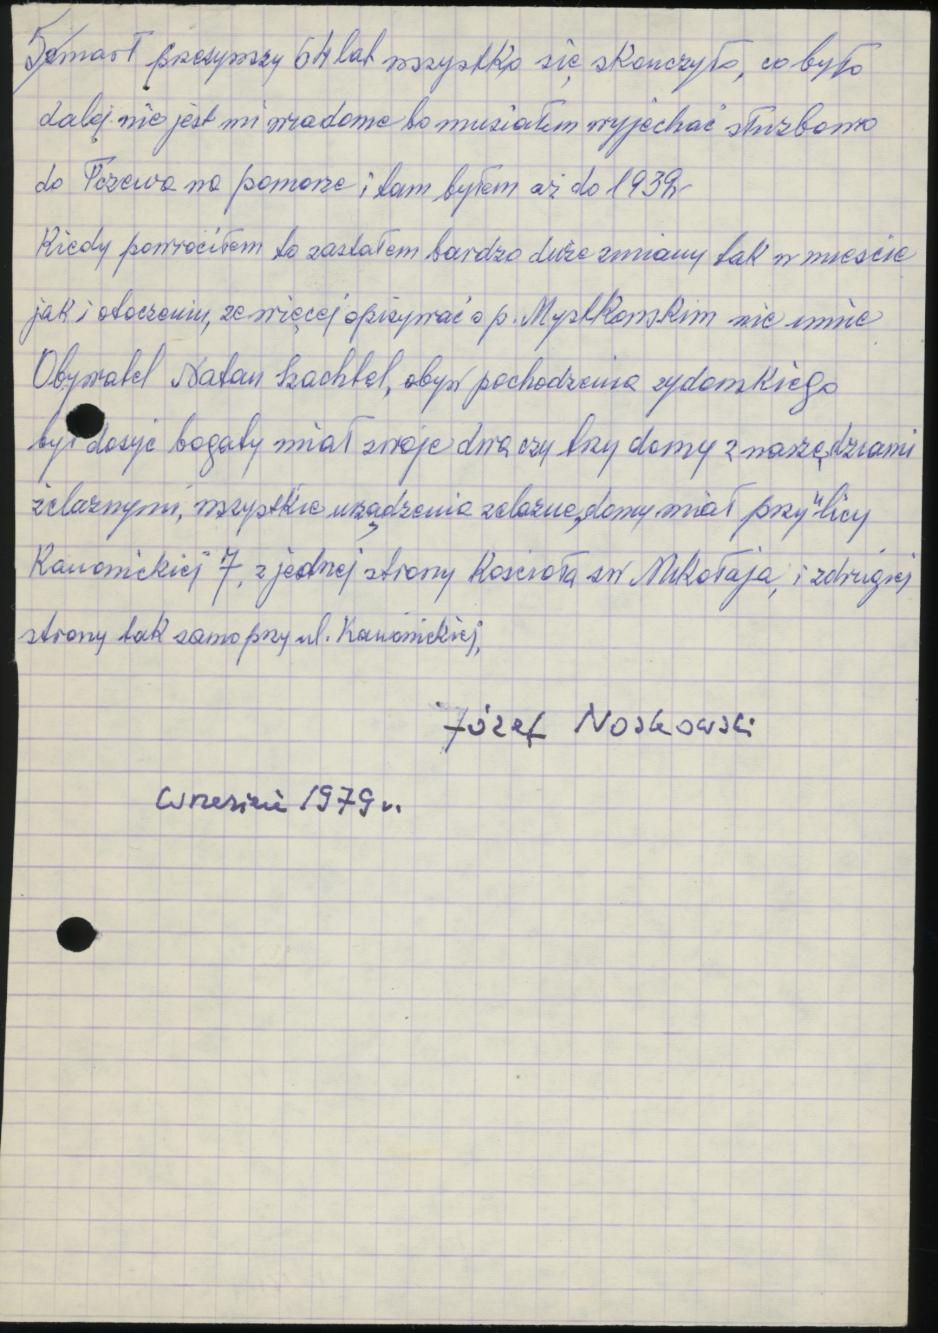 5/ zmarł przeżywszy 64 lat wszystko się skonczyło, co było
dalej nie jest mi wiadome bo musiałem wyjechać służbowo
do Tczewa na pomorze i tam byłem aż do 1939r
Kiedy powróciłem to zastałem bardzo duże zmiany tak w mieście
jak i otoczeniu, ze więcej opisywać o p. Mystkowskim nie umie
Obywatel Natan Szachtel, obyw pochodzenia zydowskiego
był dosyć bogaty miał swoje dwa czy trzy domy z narzędziami
żelaznymi, wszystkie urządzenia zelazne, domy miał przy ulicy
Kanonickiej 7, z jednej strony Kościoła św Mikołaja, i zdrugiej
strony tak samo przy ul. Kanonickiej,
Józef Noskowski
wrzesień 1979 r.